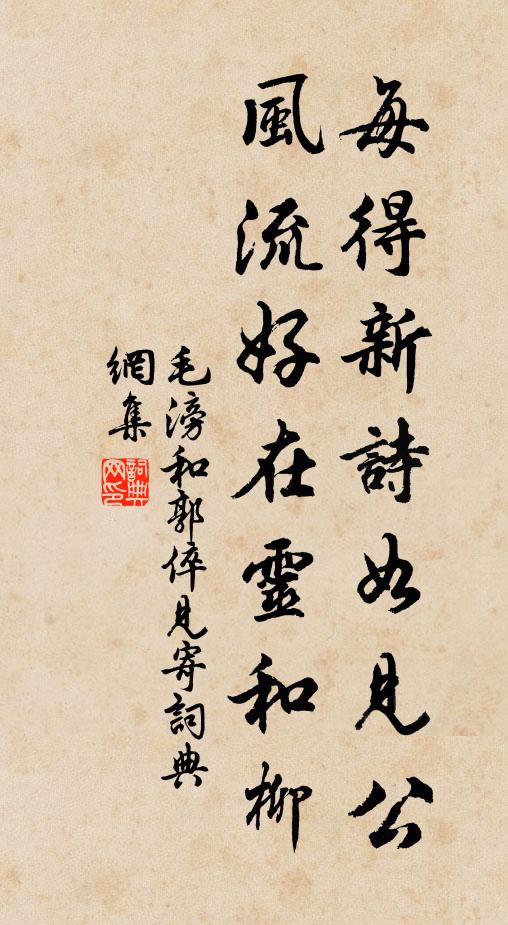 每得新詩如見公
風流好在靈和柳
毛滂和郭倅見寄詞典
網集
詞典網印